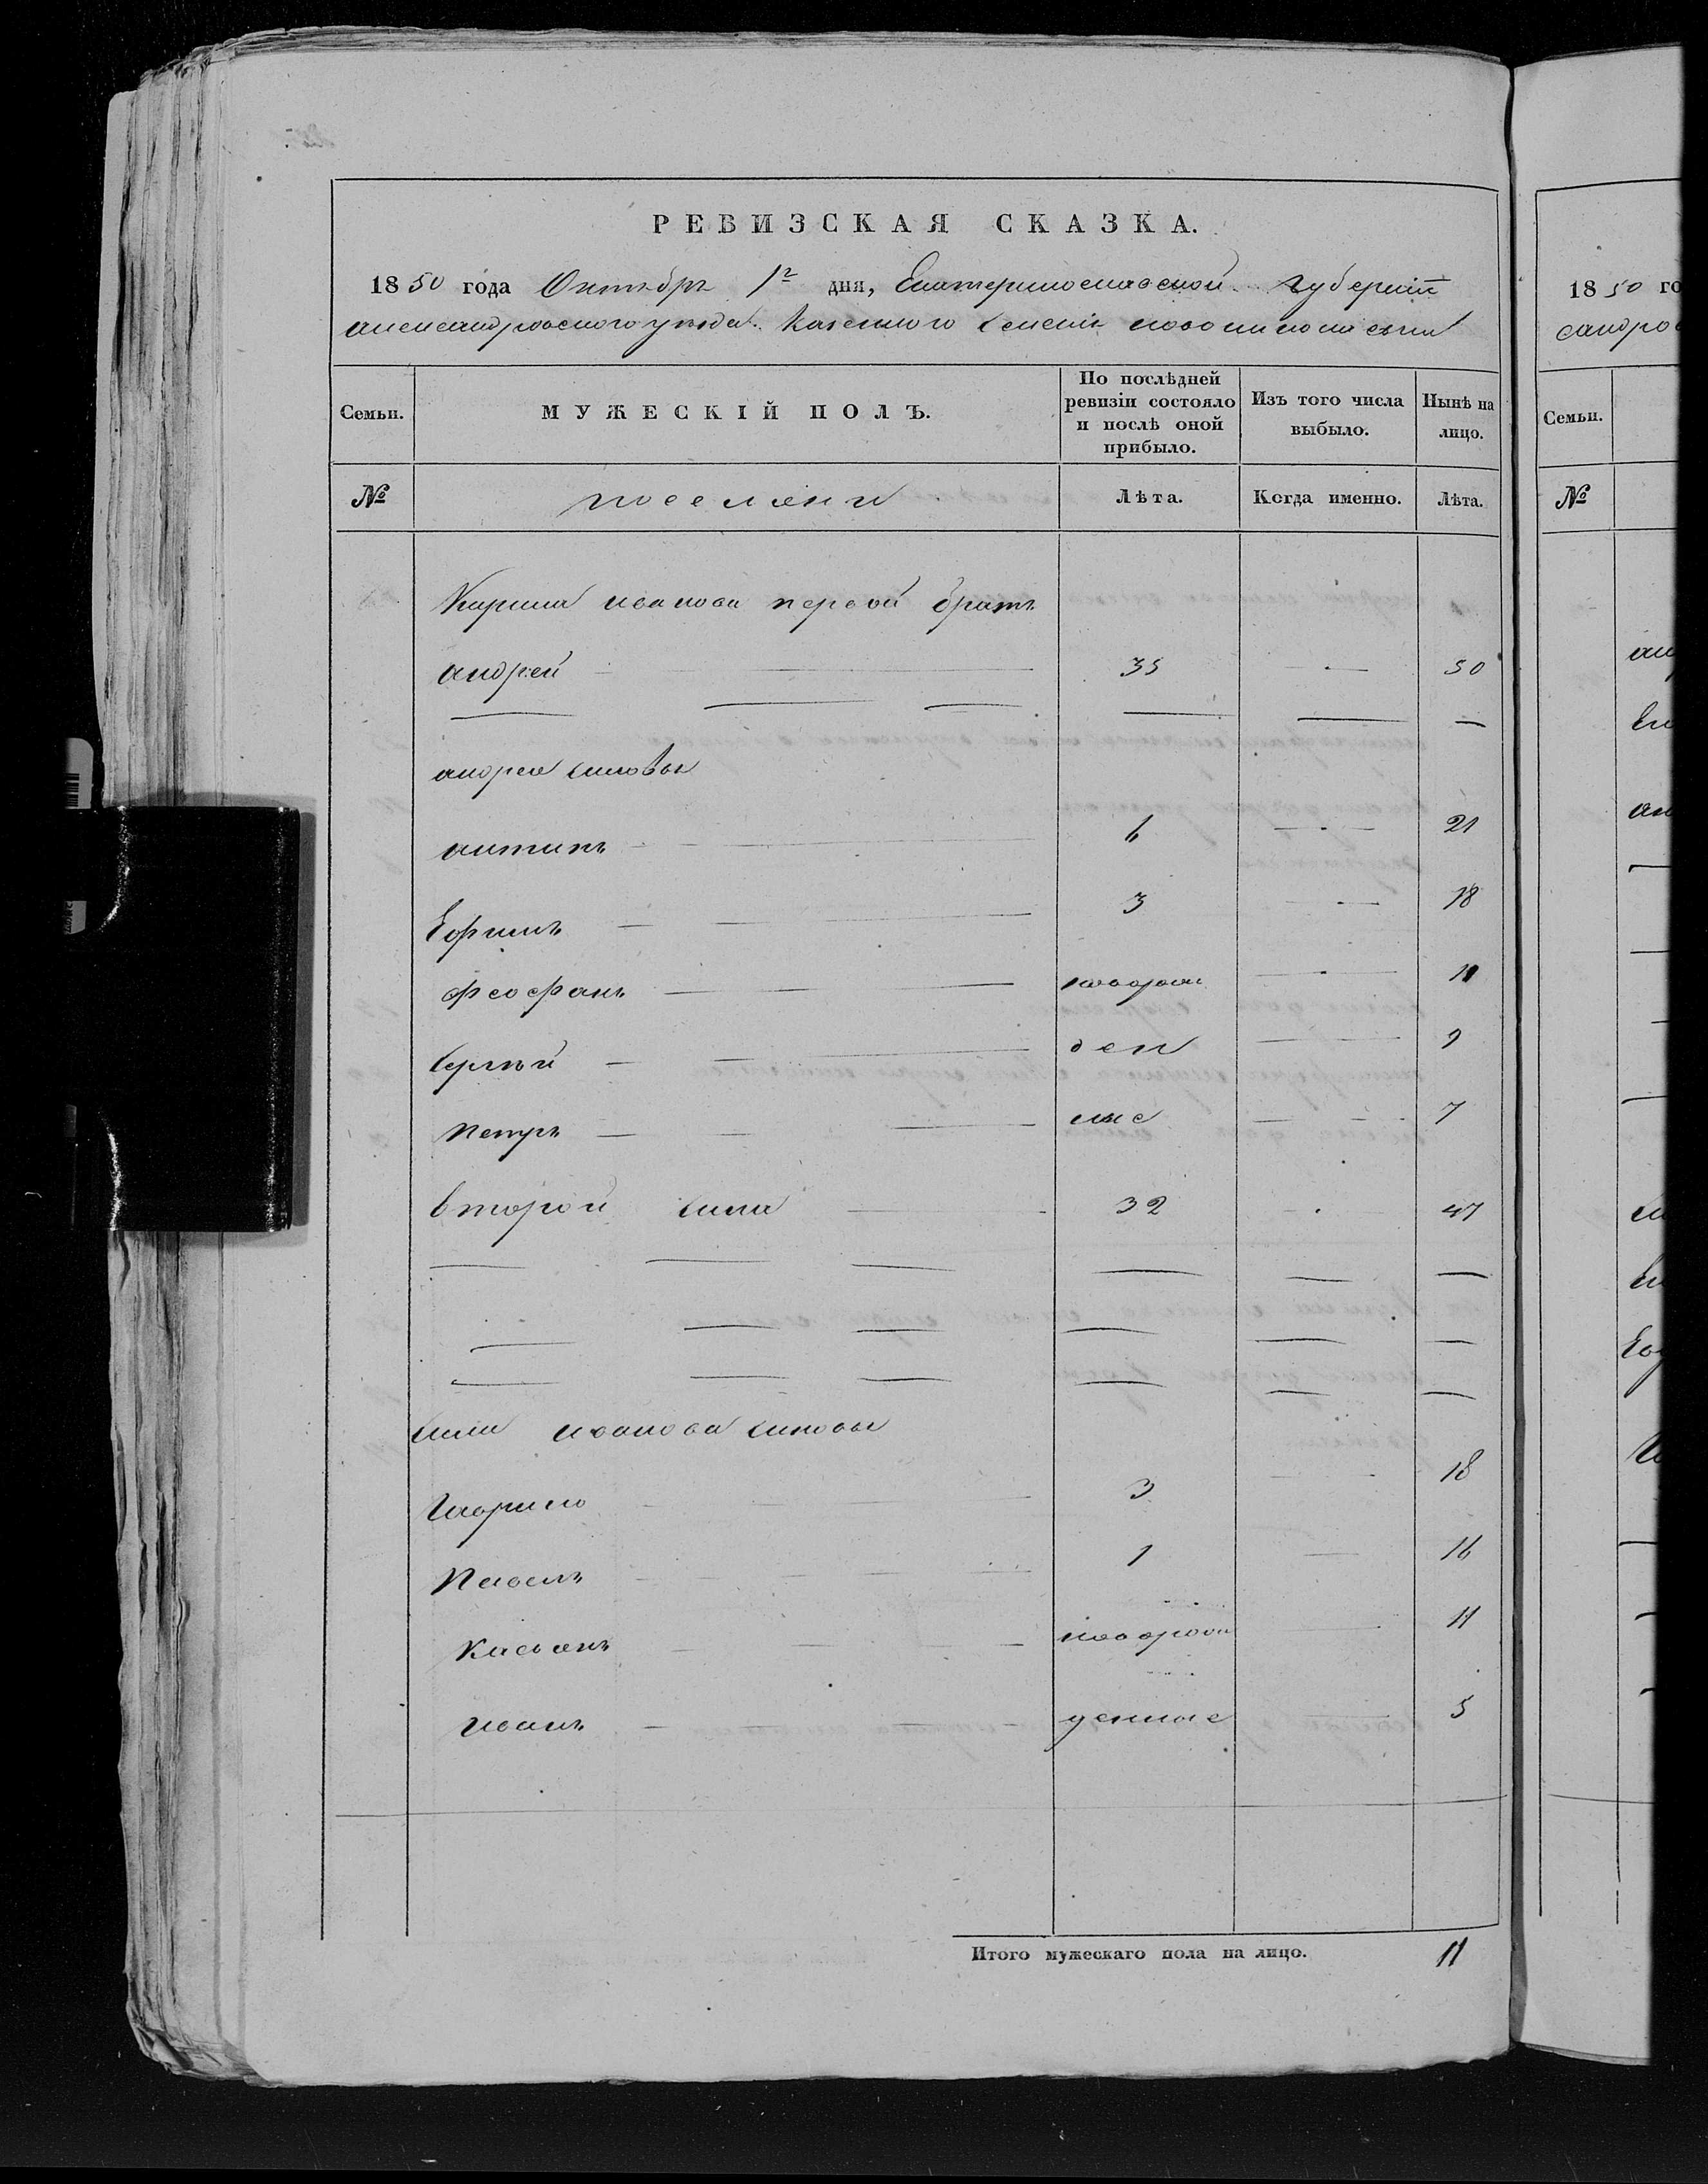 РЕВИЗСКАЯ СКАЗКА.
1850 года Октября 1го дня, Екатеринославской губернiи
александровского уезда. Казенного селенія
Семьи.
МУЖЕСКІЙ ПОЛЪ.
По послѣдней ревизіи состояло и послѣ оной прибыло.
Изъ того числа выбыло.
Нынѣ на лицо.
№
поселяни
Лѣта.
Когда именно.
Лѣта.
Кирила иванова первой братъ
андрей 35 50
андрея синовья
антипъ 6 21
Ефимъ 3 18
феофанъ новорож 11
Сергѣй ден 9
Петръ ные 7
второй сила 32 47
сила иванова синовья
Гаврило 3 18
Павелъ 1 16
Касьянъ новорож 11
иванъ денные 5
Итого мужескаго пола на лицо. 11
1850 го
сандров
Семьи.
№